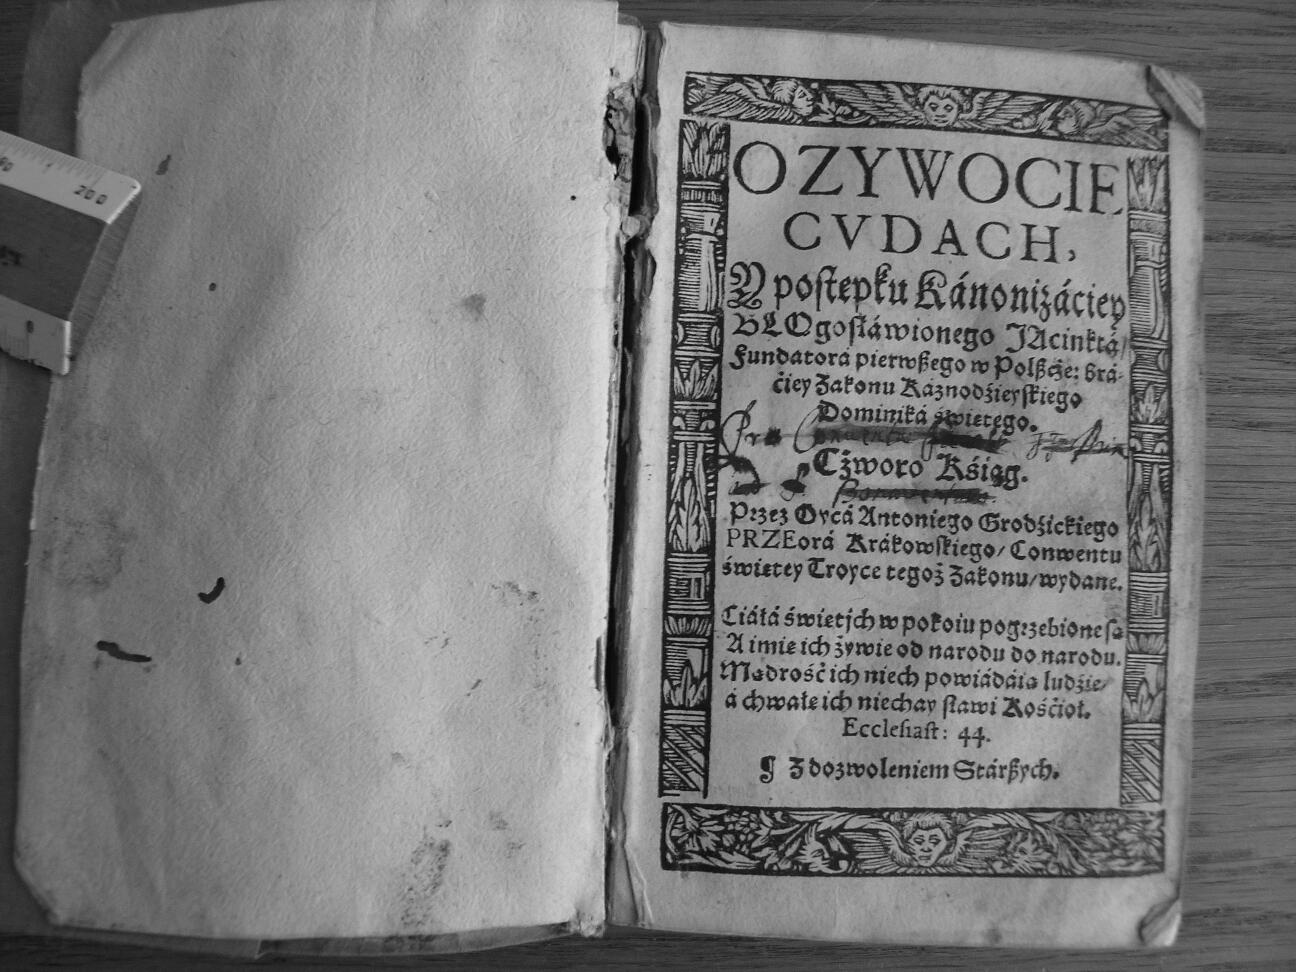 200
0
O ZYWOCIE
CVDACH,
Y postępku Kánonizáciey
BŁOgosłáwionego JAcinktá/
Fundatorá pierwßego w Polßcże: brá-
ćiey Zakonu Káznodźieyskiego
Dominiká świętego.
Cżworo Kśiąg.
Bonaventura.
Przez Oycá Antoniego Grodźickiego
PRZEorá Krákowskiego/ Conwentu
świętey Troyce tegoż Zakonu/ wydane.
Ciáłá świetych w pokoiu pogrzebione są
A imię ich żywie od narodu do narodu.
Mądrość ich niech powiádáią ludźie/
á chwałę ich niechay sławi Kośćioł.
Ecclesiast: 44.
¶ Z dozwoleniem Stárßych.